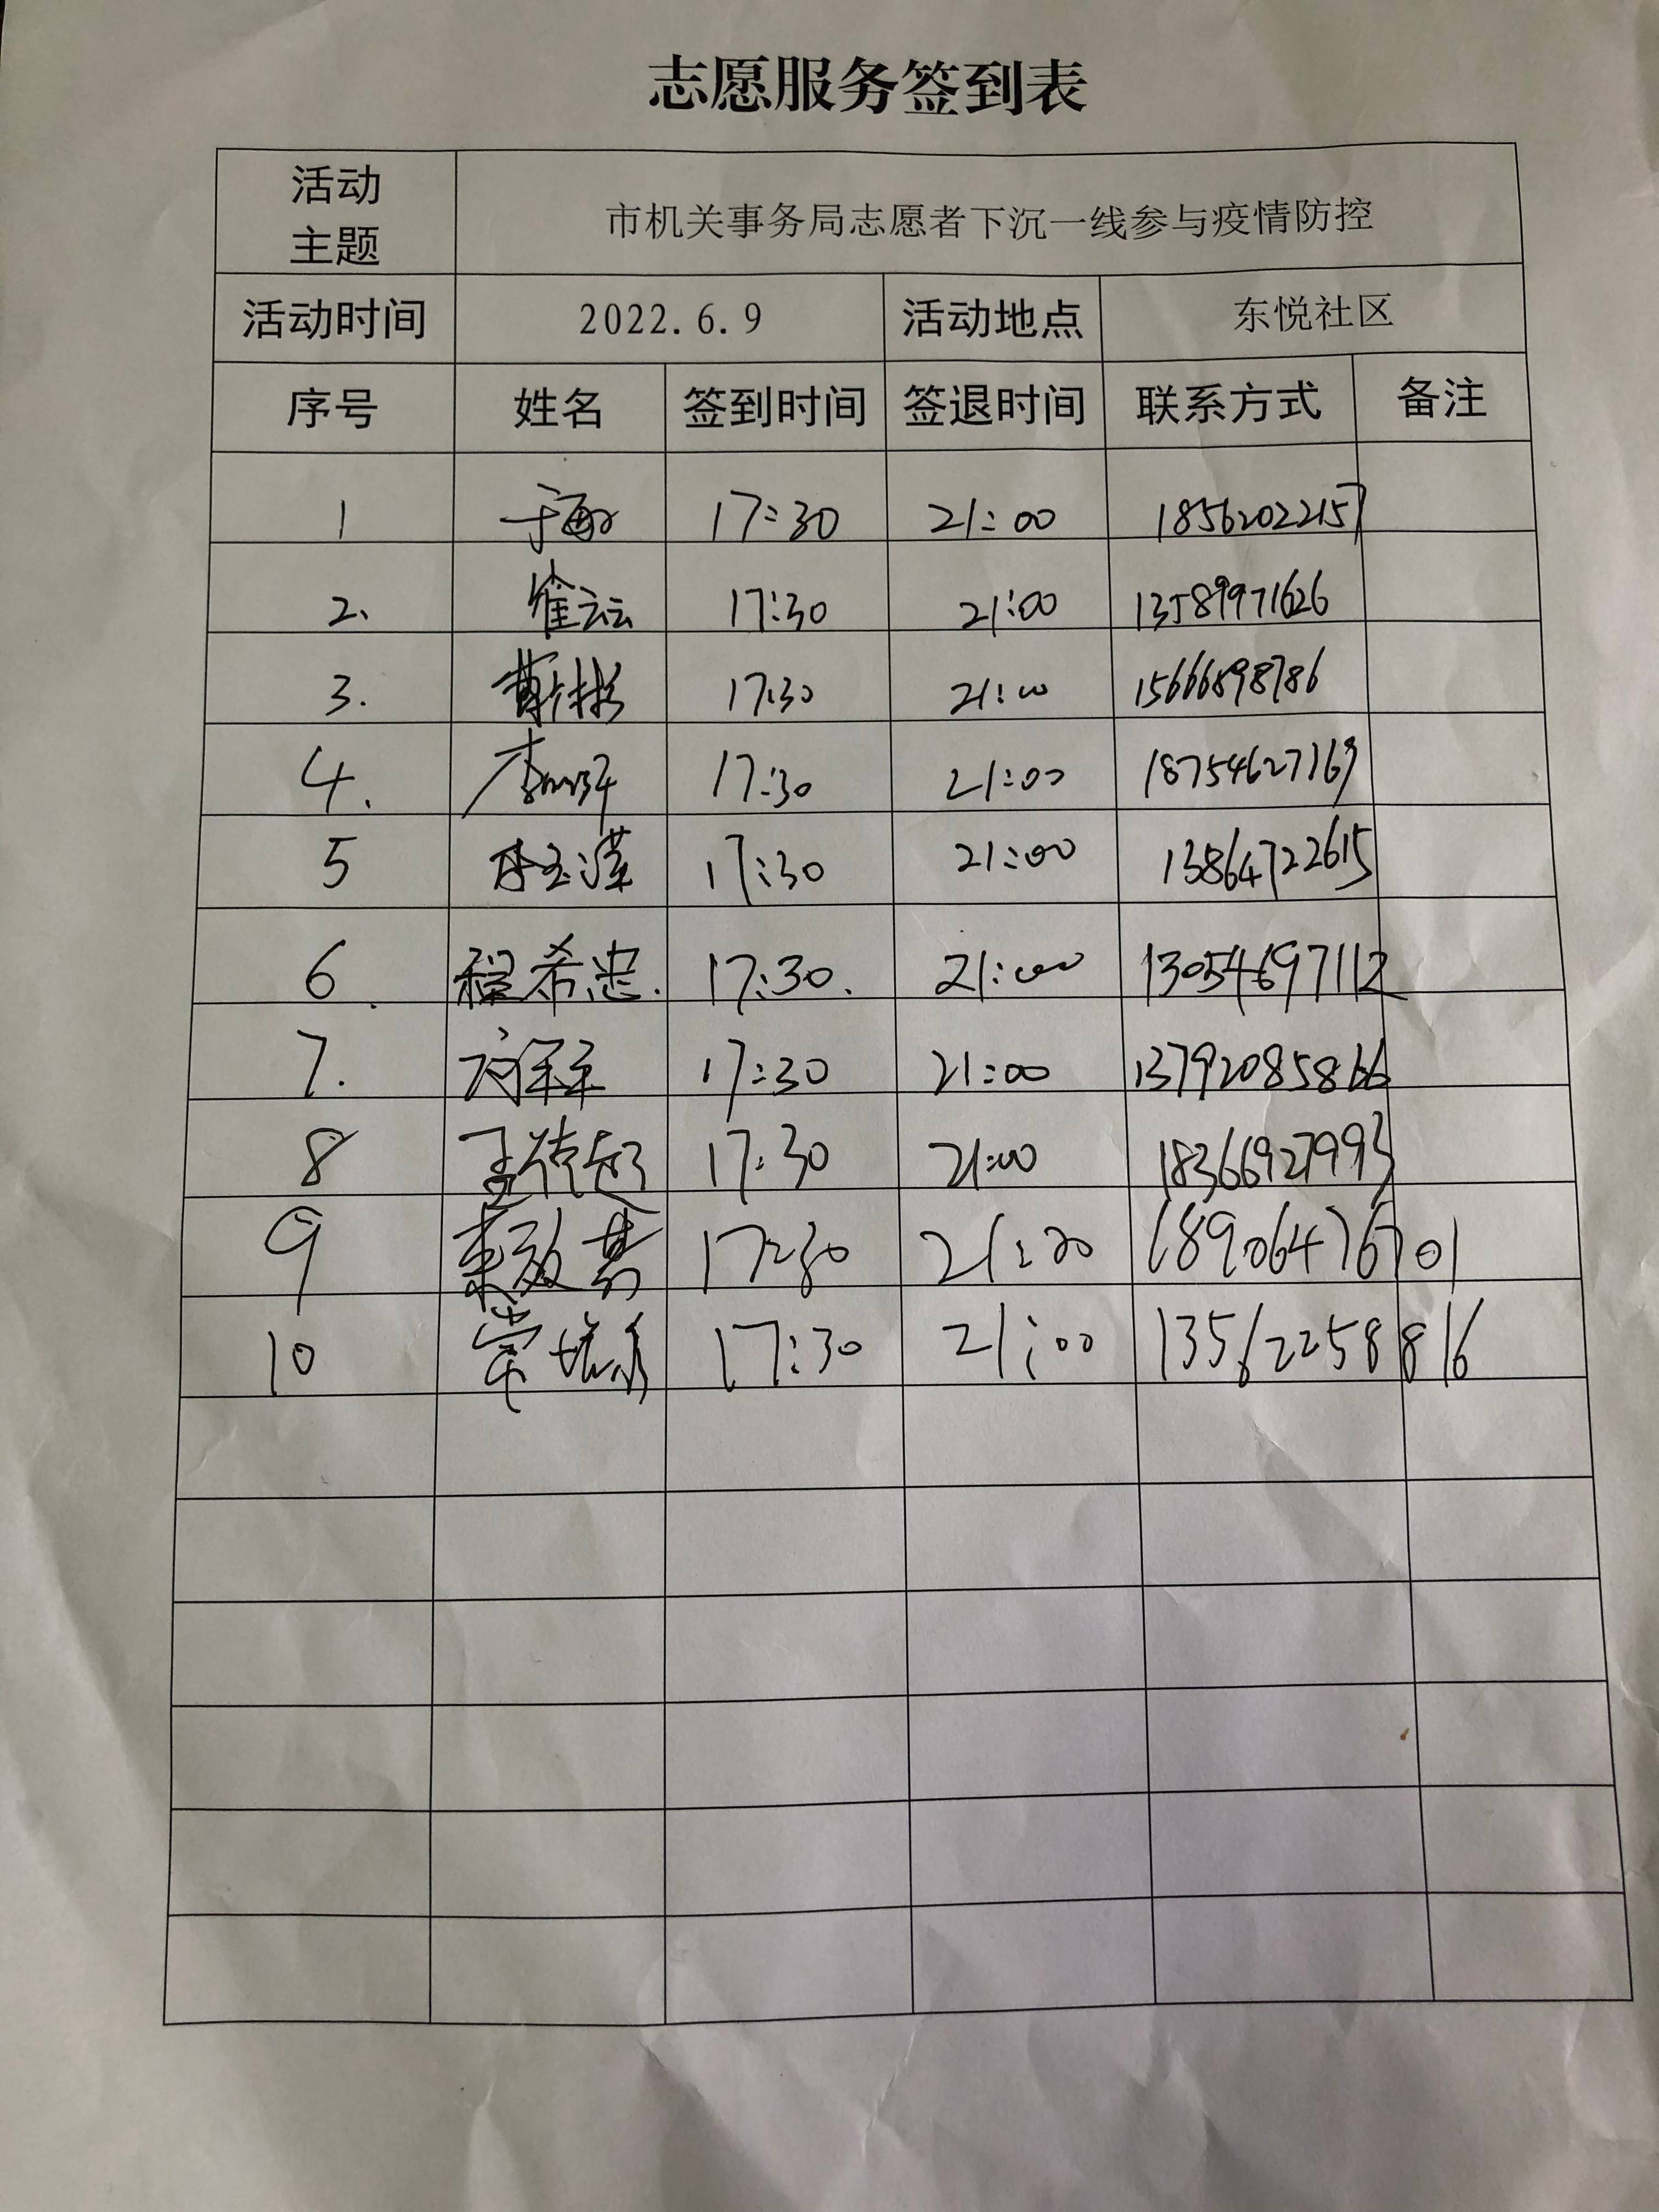 志愿服务签到表
活动主题 市机关事务局志愿者下沉一线参与疫情防控
活动时间 2022.6.9 活动地点 东悦社区
序号 姓名 签到时间 签退时间 联系方式 备注
1 于敏 17:30 21:00 18562022157
2、 崔云云 17:30 21:00 13589971626
3. 17:30 21:00 15666898786
4. 17:30 21:00 18754627169
5 17:30 21:00 13864722615
6. 程希忠. 17:30. 21:00 13054697112
7. 17:30 21:00 13792085866
8 17:30 21:00 18366927993
9 17:30 21:00 18906476701
10 17:30 21:00 13562258816